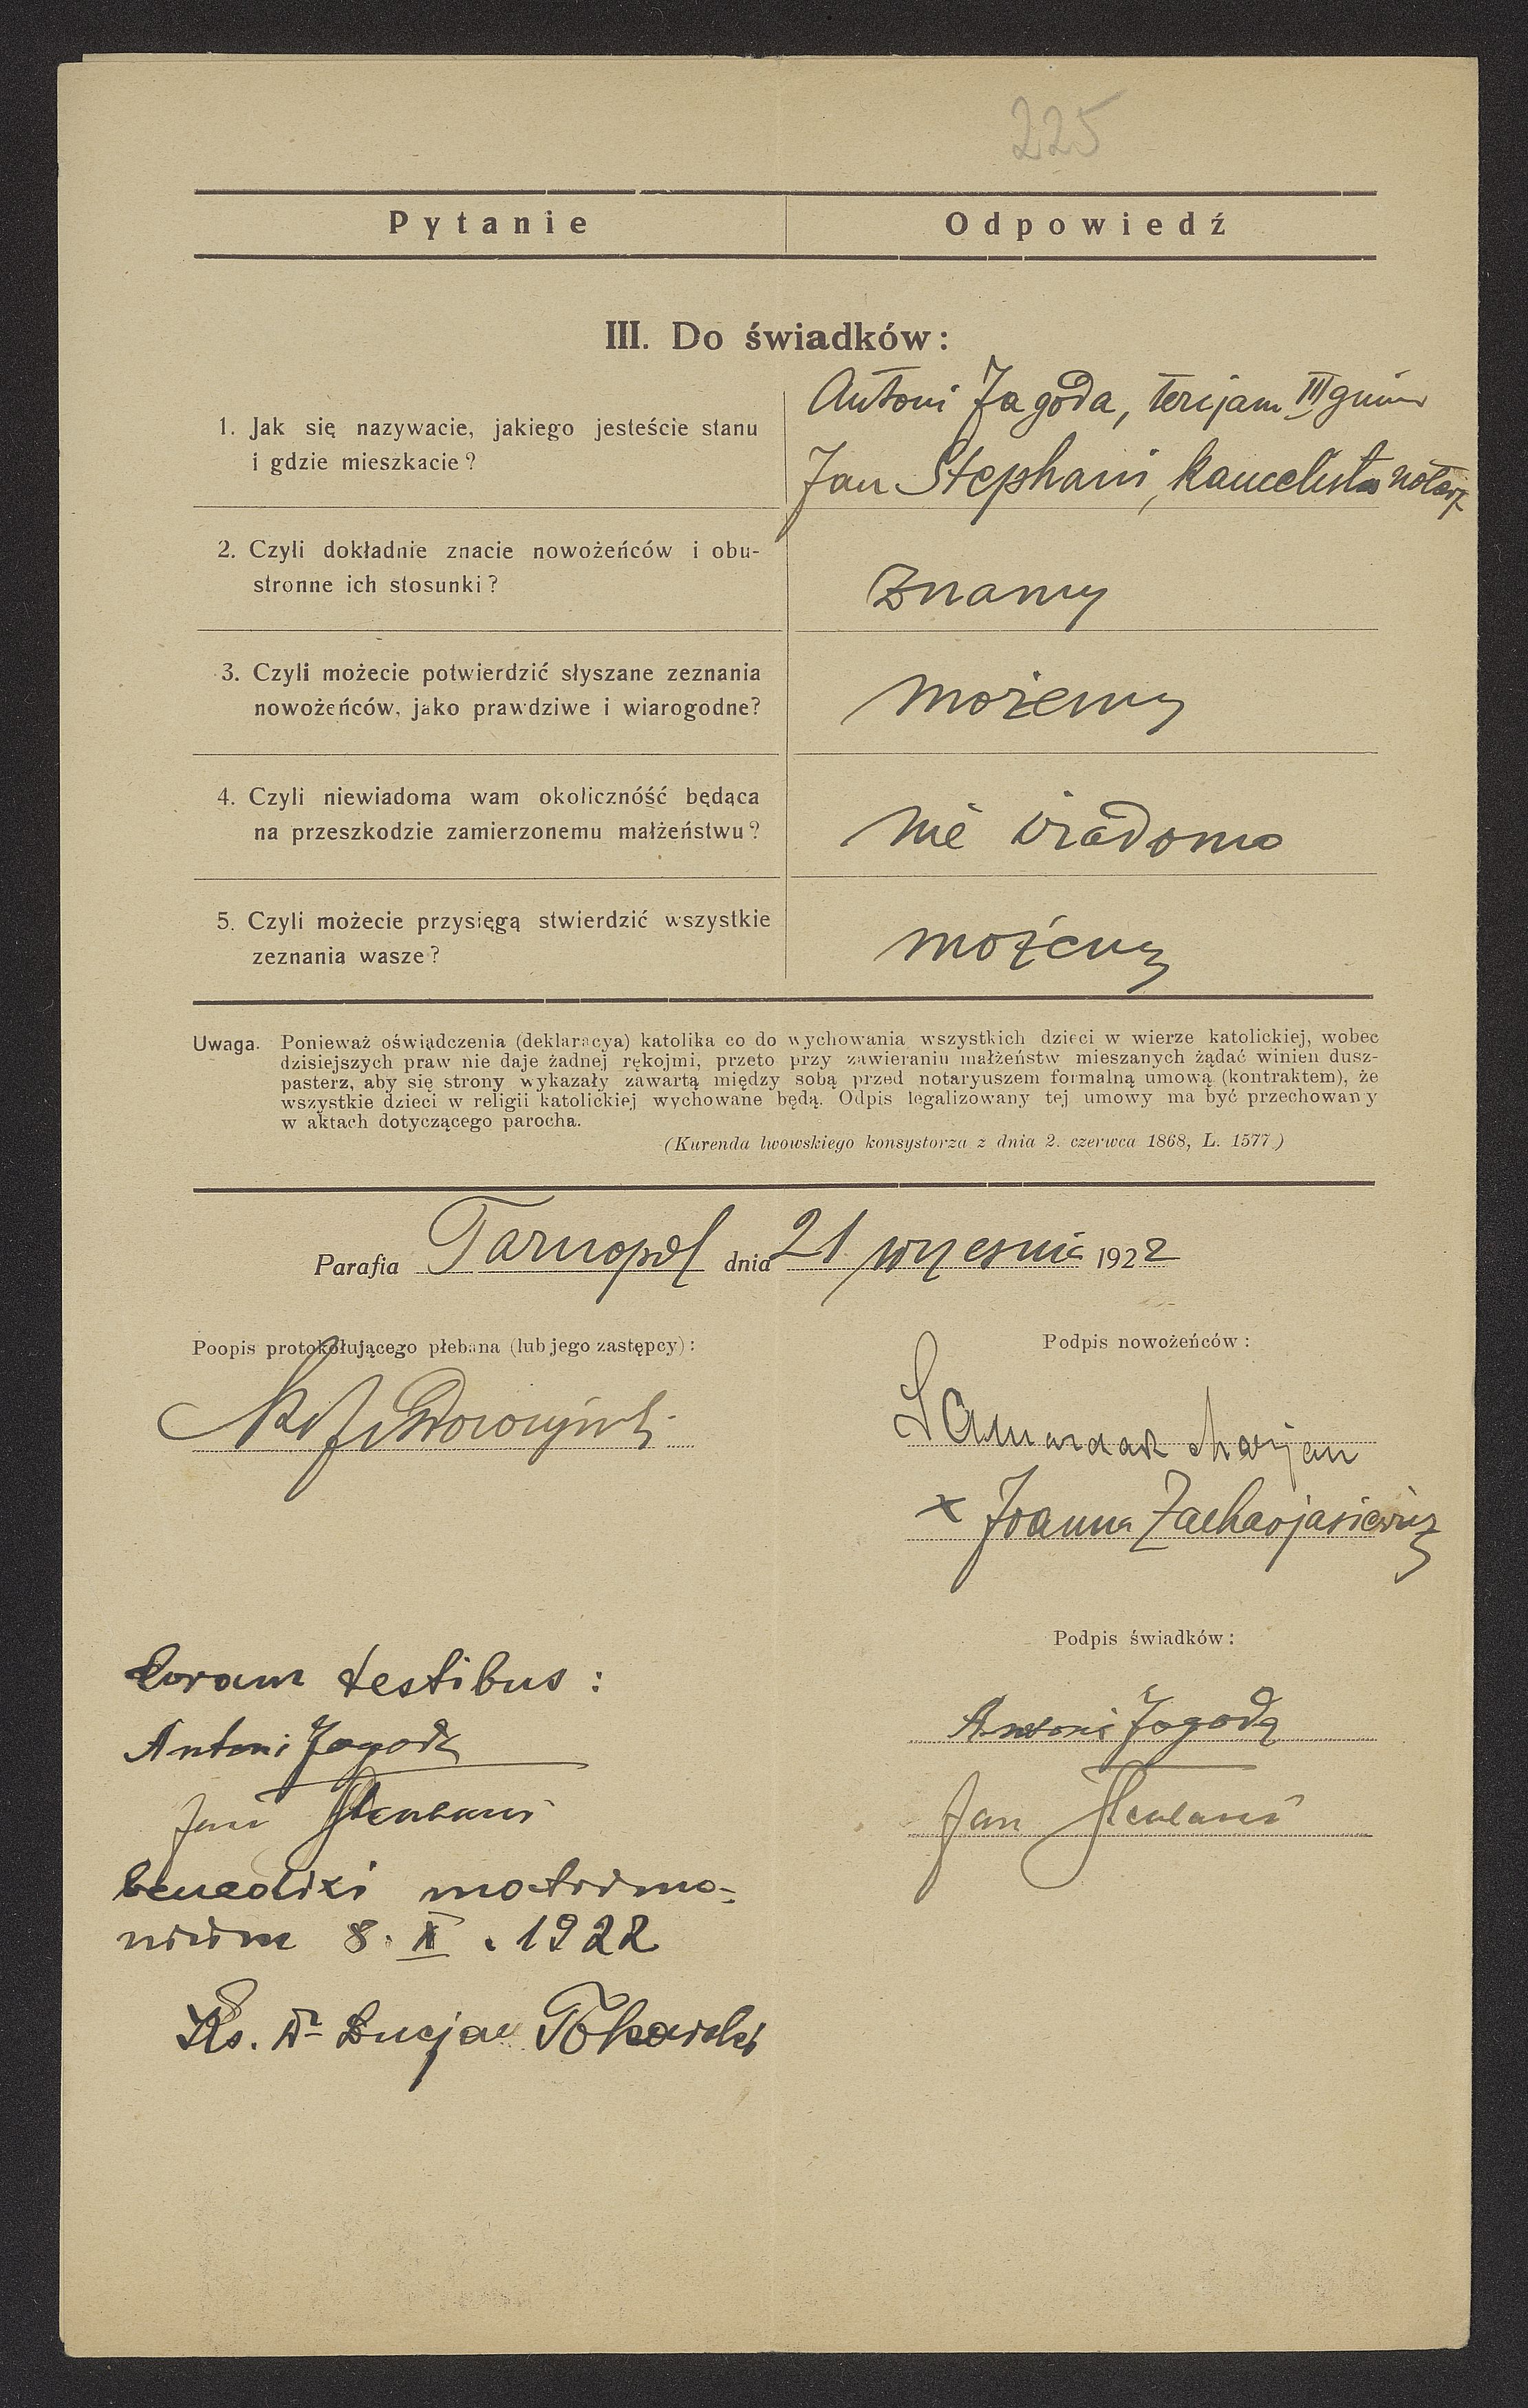 225
Pytanie Odpowiedź
III. Do świadków:
1. Jak się nazywacie, jakiego jesteście stanu
i gdzie mieszkacie?
Antoni Jagoda, tercjan III gimn
Jan Stephani, kancelista notarj
2. Czyli dokładnie znacie nowożeńców i obu-
stronne ich stosunki?
znamy
3. Czyli możecie potwierdzić słyszane zeznania
nowożeńców, jako prawdziwe i wiarogodne?
możemy
4. Czyli niewiadoma wam okolicznóść będąca
na przeszkodzie zamierzonemu małżeństwu?
nie wiadoma
5. Czyli możecie przysięgą stwierdzić wszystkie
zeznania wasze?
możemy
Uwaga. Ponieważ oświadczenia (deklaracya) katolika co do wychowania wszystkich dzieci w wierze katolickiej, wobec
dzisiejszych praw nie daje żadnej rękojmi, przeto przy zawieraniu małżeństw mieszanych żądać winien dusz-
pasterz, aby się strony wykazały zawartą między sobą przed notaryuszem formalną umową (kontraktem), że
wszystkie dzieci w religii katolickiej wychowane będą. Odpis legalizowany tej umowy ma być przechowany
w aktach dotyczącego parocha.
(Kurenda lwowskiego konsystorza z dnia 2. czerwca 1868, L. 1577.)
Parafia Tarnopol dnia 21 września 1922
Poopis protokołującego płebana (lub jego zastępcy):
Podpis nowożeńców:
Marjan
x Joanna Zacharjasiewicz
Podpis świadków:
Antoni Jagoda
Jan Stephani
Coram testibus:
Antoni Jagoda
Jan Stephani
benedixi matrimo-
nium 8. X. 1922
Ks. Dr Lucjan Tokarski